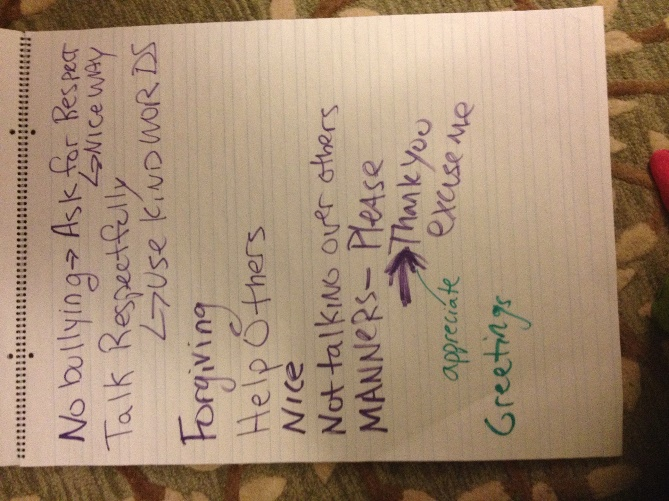 No bullying → Ask for Respect
↳ NICE WAY
Talk Respectfully
↳ Use KIND WORDS
Forgiving
Help Others
NICE
Not talking over others
MANNERS - Please
→ Thank you
excuse me
appreciate
Greetings